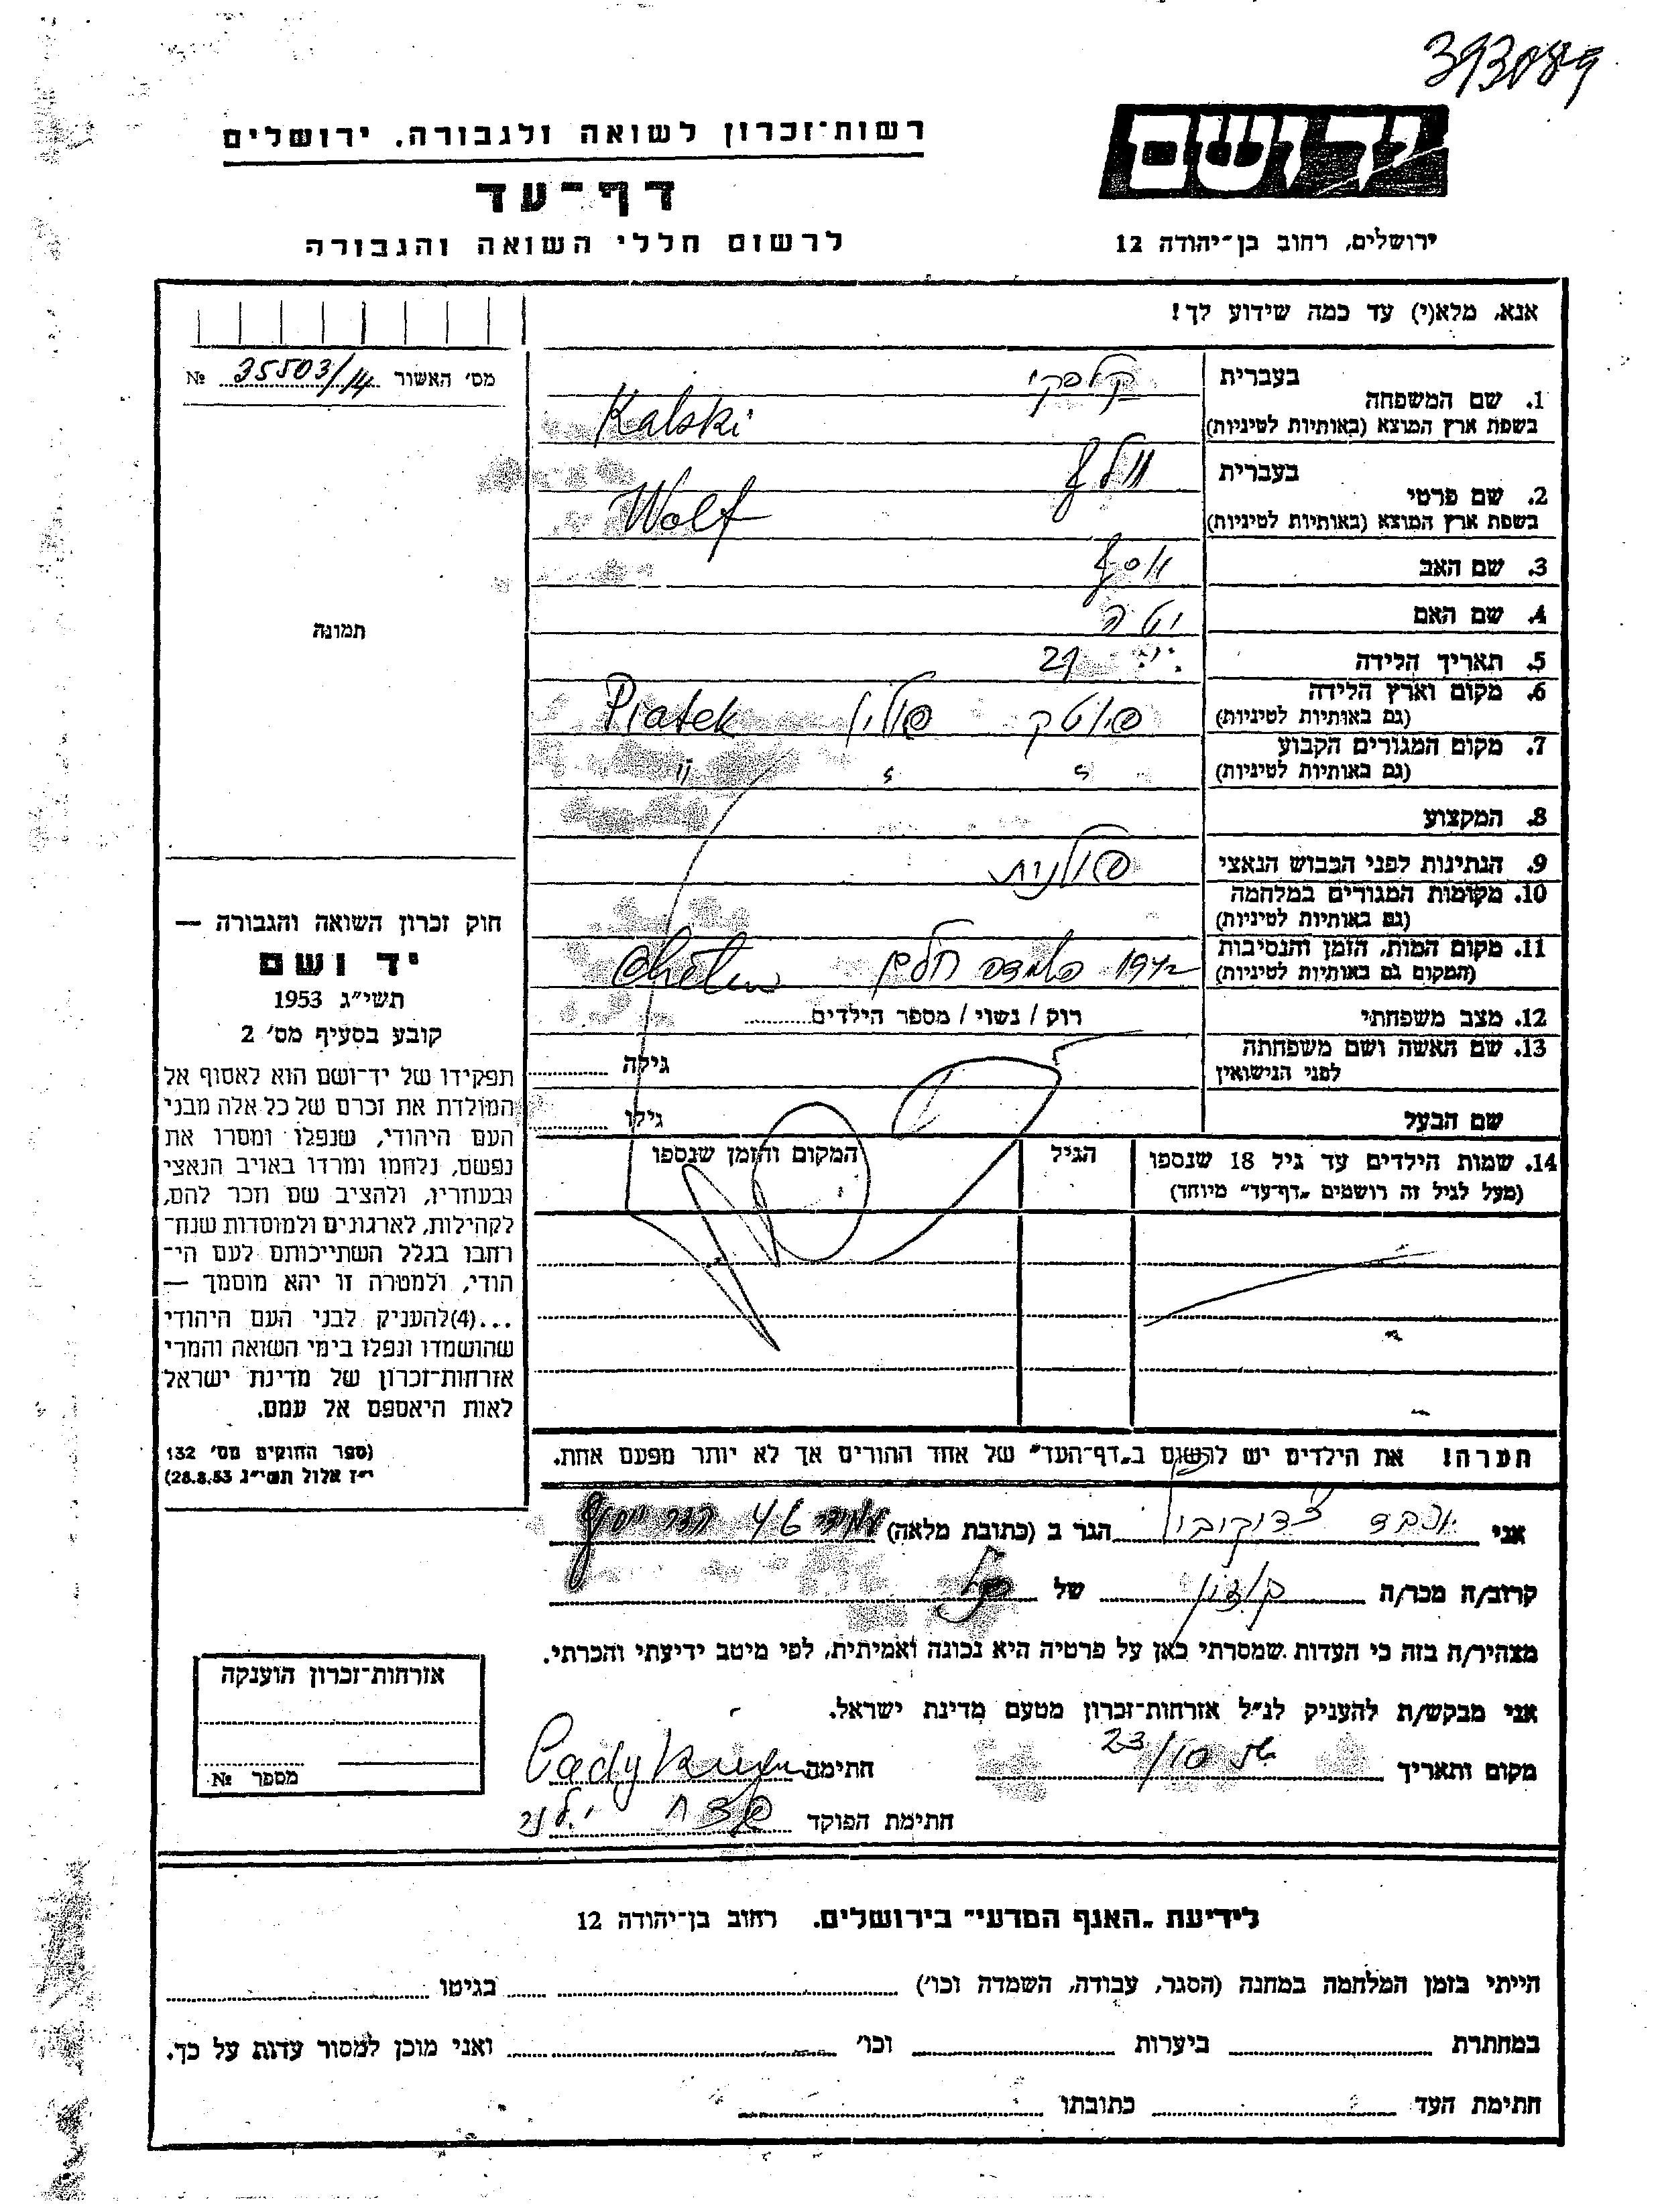 393089
רשות־זכרון לשואה ולגבורה, ירושלים
דף־עד
לרשום חללי השואה והגבורה
יד ושם
ירושלים, רחוב בן־יהודה 12
אנא, מלא(י) עד כמה שידוע לך!
מס׳ האשור 35503/14 №
תמונה
חוק זכרון השואה והגבורה —
יד ושם
תשי״ג 1953
קובע בסעיף מס׳ 2
תפקידו של יד־ושם הוא לאסוף אל
המולדת את זכרם של כל אלה מבני
העם היהודי, שנפלו ומסרו את
נפשם, נלחמו ומרדו באויב הנאצי
ובעוזריו, ולהציב שם וזכר להם,
לקהילות, לארגונים ולמוסדות שנח־
רחבו בגלל השתייכותם לעם הי־
הודי, ולמטרה זו יהא מוסמך —
...(4)להעניק לבני העם היהודי
שהושמדו ונפלו בימי השואה והמרי
אזרחות־זכרון של מדינת ישראל
לאות היאספם אל עמם.
(ספר החוקים מס׳ 132
י״ז אלול תשי״ג 28.8.53)
1. שם המשפחה בעברית קלסקי
בשפת ארץ המוצא (באותיות לטיניות) Kalski
2. שם פרטי בעברית וולף
בשפת ארץ המוצא (באותיות לטיניות) Wolf
3. שם האב יוסף
4. שם האם יטה
5. תאריך הלידה 21
6. מקום וארץ הלידה
(גם באותיות לטיניות) פיוטק פולין Piatek
7. מקום המגורים הקבוע
(גם באותיות לטיניות)
8. המקצוע
9. הנתינות לפני הכבוש הנאצי פולנית
10. מקומות המגורים במלחמה
(גם באותיות לטיניות)
11. מקום המות, הזמן והנסיבות
(המקום גם באותיות לטיניות) 1942 חלמן
12. מצב משפחתי רוק / נשוי / מספר הילדים
13. שם האשה ושם משפחתה
לפני הנישואין גילה
שם הבעל גילו
14. שמות הילדים עד גיל 18 שנספו
(מעל לגיל זה רושמים „דף־עד״ מיוחד)
הגיל
המקום והזמן שנספו
הערה! את הילדים יש לרשום ב„דף־העד״ של אחד ההורים אך לא יותר מפעם אחת.
אני הגר ב (כתובת מלאה)
קרוב/ה מכר/ה של
מצהיר/ה בזה כי העדות שמסרתי כאן על פרטיה היא נכונה ואמיתית, לפי מיטב ידיעתי והכרתי.
אני מבקש/ת להעניק לנ״ל אזרחות־זכרון מטעם מדינת ישראל.
מקום ותאריך 23/10 חתימה
חתימת הפוקד
אזרחות־זכרון הוענקה
מספר №
לידיעת „האגף המדעי״ בירושלים. רחוב בן־יהודה 12
הייתי בזמן המלחמה במחנה (הסגר, עבודה, השמדה וכו׳) בגיטו
במחתרת ביערות וכו׳ ואני מוכן למסור עדות על כך.
חתימת העד כתובתו